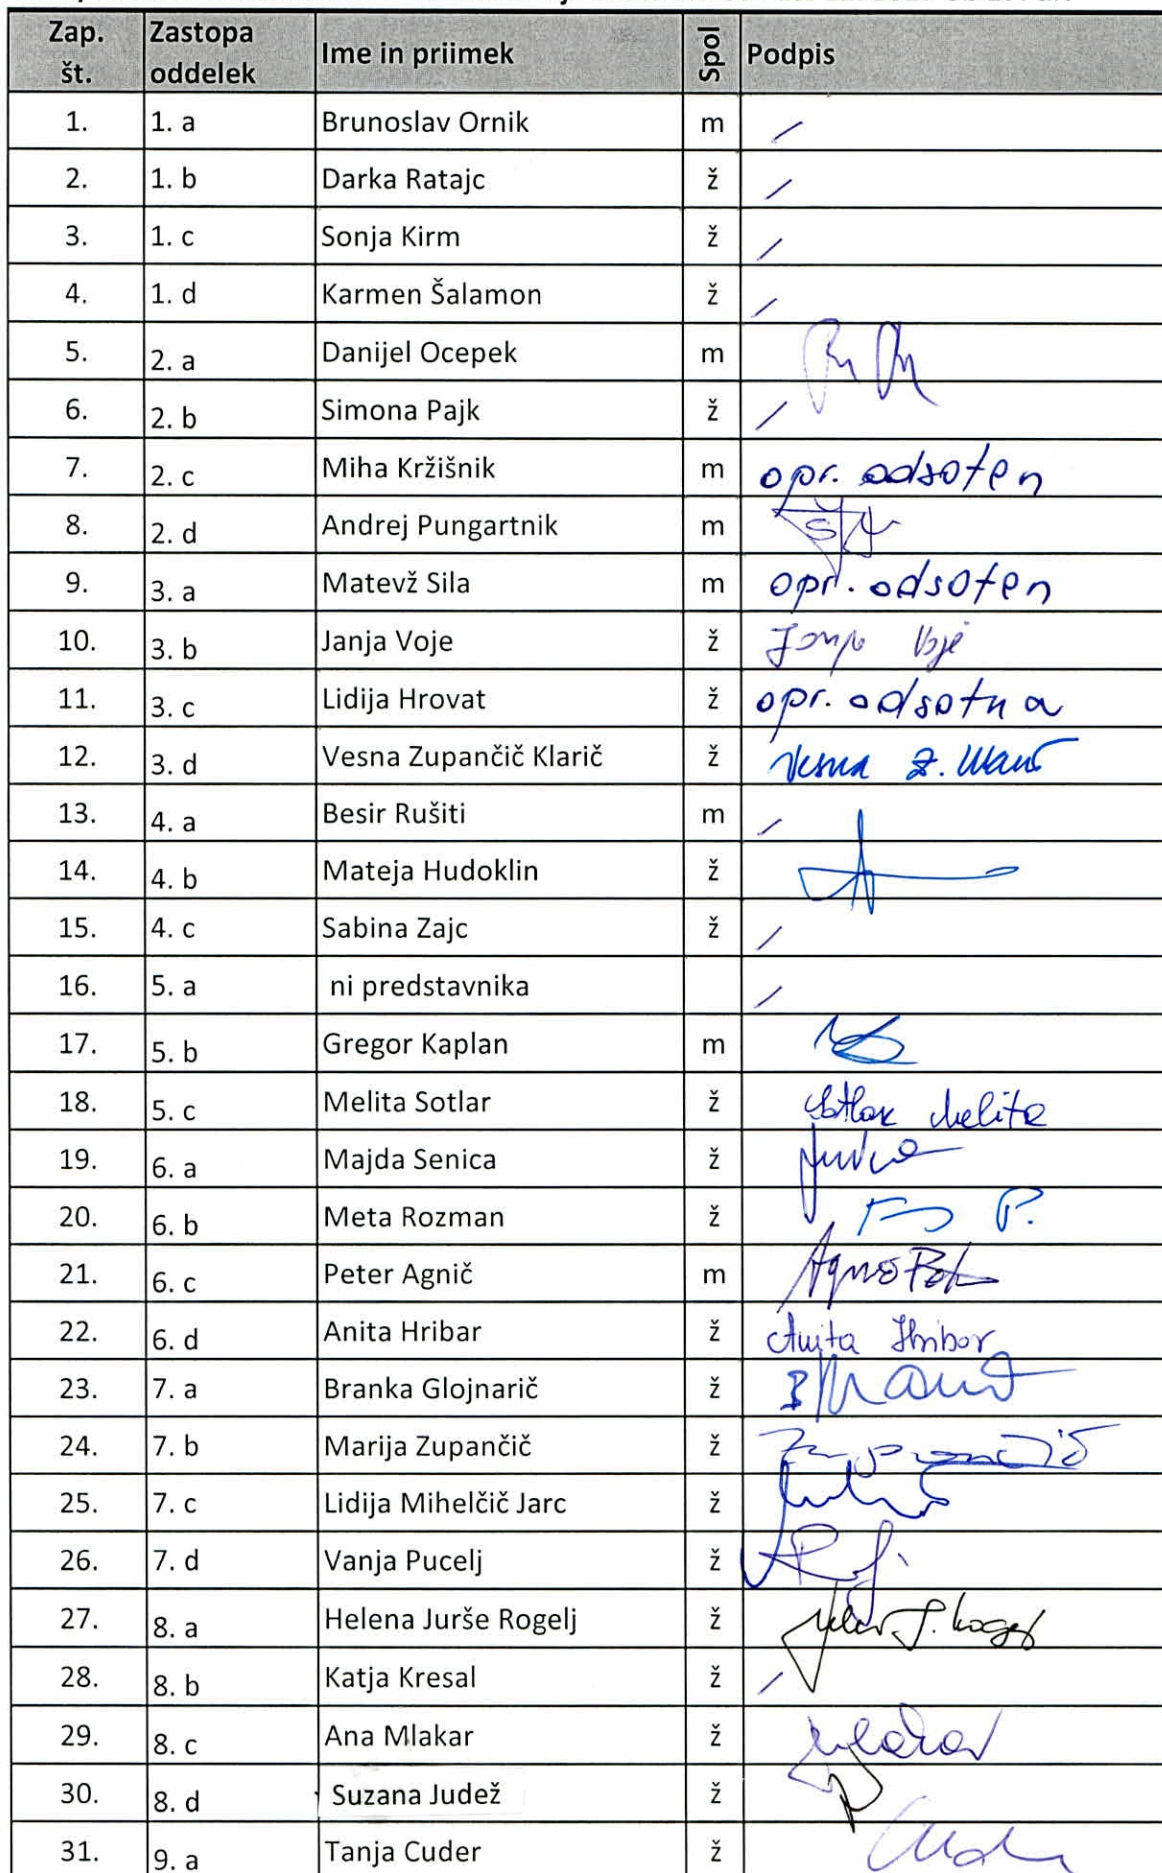 Zap. št. Zastopa oddelek Ime in priimek Spol Podpis
1. 1. a Brunoslav Ornik m /
2. 1. b Darka Ratajc ž /
3. 1. c Sonja Kirm ž /
4. 1. d Karmen Šalamon ž /
5. 2. a Danijel Ocepek m
6. 2. b Simona Pajk ž /
7. 2. c Miha Kržišnik m opr. odsoten
8. 2. d Andrej Pungartnik m
9. 3. a Matevž Sila m opr. odsoten
10. 3. b Janja Voje ž Janja Voje
11. 3. c Lidija Hrovat ž opr. odsotna
12. 3. d Vesna Zupančič Klarič ž Vesna Z. Klarič
13. 4. a Besir Rušiti m /
14. 4. b Mateja Hudoklin ž
15. 4. c Sabina Zajc ž /
16. 5. a ni predstavnika /
17. 5. b Gregor Kaplan m
18. 5. c Melita Sotlar ž Sotlar Melita
19. 6. a Majda Senica ž
20. 6. b Meta Rozman ž
21. 6. c Peter Agnič m
22. 6. d Anita Hribar ž Anita Hribar
23. 7. a Branka Glojnarič ž
24. 7. b Marija Zupančič ž Zupančič
25. 7. c Lidija Mihelčič Jarc ž
26. 7. d Vanja Pucelj ž
27. 8. a Helena Jurše Rogelj ž
28. 8. b Katja Kresal ž /
29. 8. c Ana Mlakar ž Mlakar
30. 8. d Suzana Judež ž
31. 9. a Tanja Cuder ž